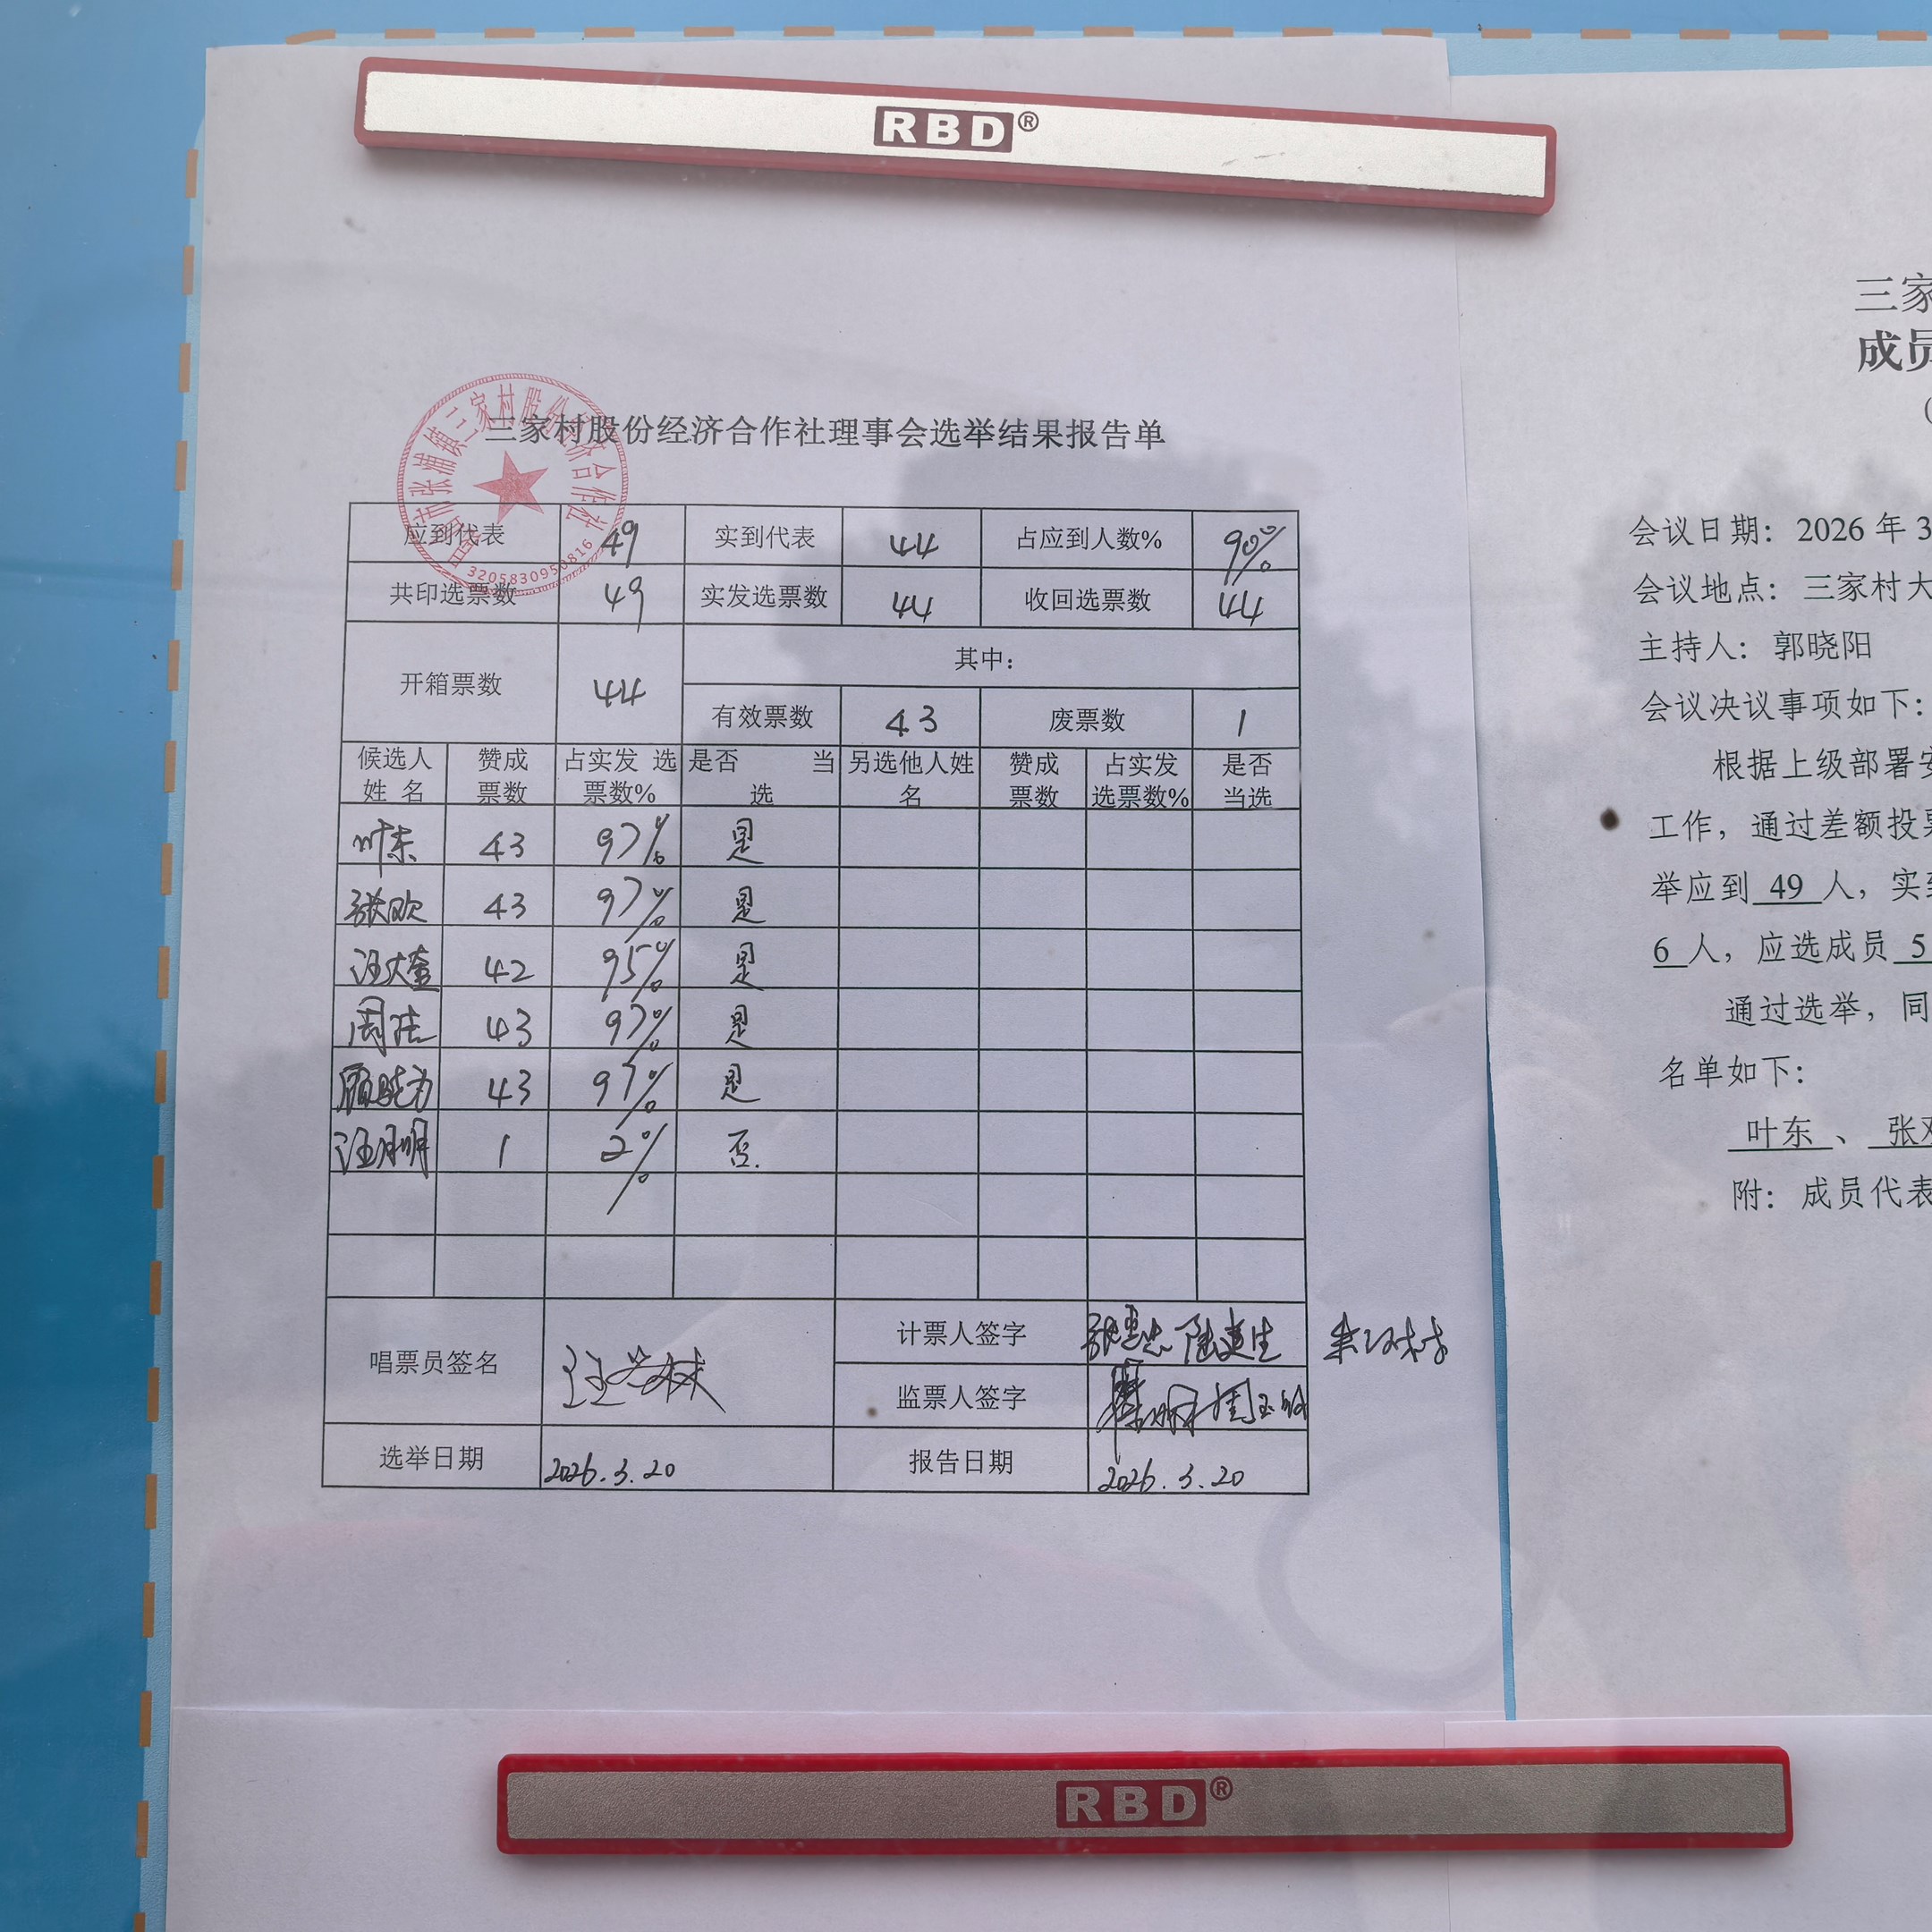 RBD®
三家村股份经济合作社理事会选举结果报告单
3205830950816
应到代表 49 实到代表 44 占应到人数% 90%
共印选票数 49 实发选票数 44 收回选票数 44
开箱票数 44 其中:
有效票数 43 废票数 1
候选人姓 名 赞成票数 占实发 选票数% 是否 当选 另选他人姓名 赞成票数 占实发选票数% 是否当选
叶东 43 97% 是
张欢 43 97% 是
汪大奎 42 95% 是
周洁 43 97% 是
43 97% 是
汪月明 1 2% 否.
唱票员签名 计票人签字
监票人签字
选举日期 2026.3.20 报告日期 2026.3.20
三家
成员
(
会议日期: 2026 年 3
会议地点: 三家村大
主持人: 郭晓阳
会议决议事项如下:
根据上级部署安
工作, 通过差额投票
举应到 49 人, 实到
6 人, 应选成员 5
通过选举, 同
名单如下:
叶东 、 张欢
附: 成员代表
RBD®